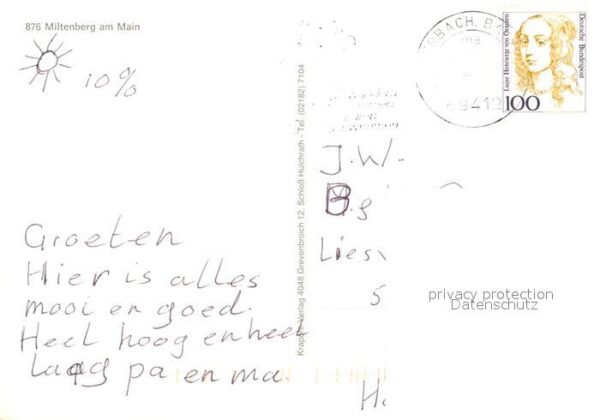 876 Miltenberg am Main
10%
Groeten
Hier is alles
mooi en goed.
Heel hoog en heel
laag pa en ma.
Verlag 4048 Grevenbroich 12. Schloß Hülchrath - Tel. (02182) 7104
Luise Henriette von Oranien
Deutsche Bundespost
100
J.W.
B.
Lies
5
H.
privacy protection
Datenschutz